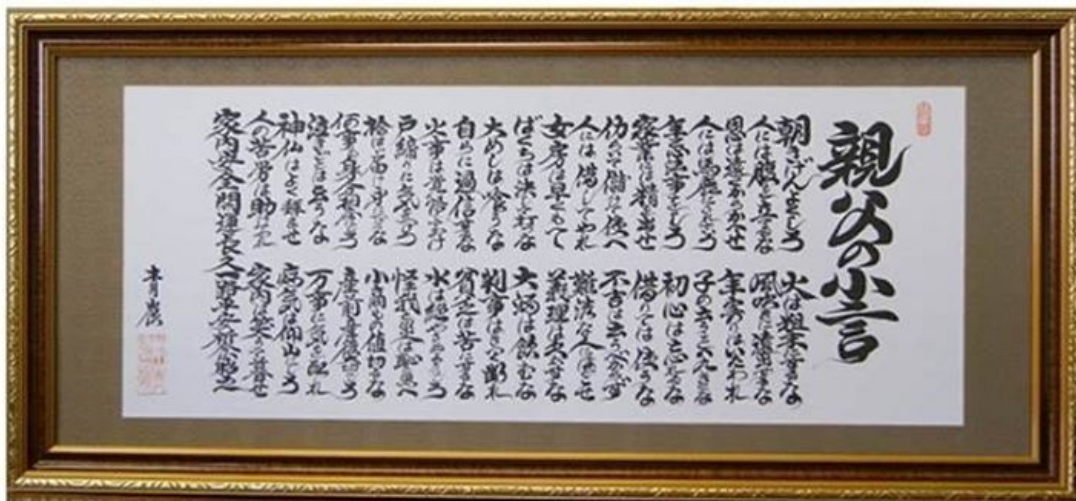 親父の小言
朝きげんよくしろ 火は粗末にするな
人には腹を立てるな 風吹きに遠出するな
恩は遠くからかくせ 年寄りはいたわれ
人には馬鹿にされろ 子の云うことは九九きくな
年忌法事をしろ 初心は忘れるな
家業には精を出せ 借りては使うな
働いて儲けて使へ 不吉は云うべからず
人には貸してやれ 難渋な人にほどこせ
女房は早くもて 義理は欠かすな
ばくちは決して打つな 大酒は飲むな
大めしは喰うな 判事はきつく断れ
自らに過信するな 貧乏は苦にするな
火事は覚悟しておけ 水は絶やさぬようにしろ
戸締りに気をつけろ 怪我と災は恥と思へ
拾わば届け身につけるな 小商もの値切るな
何事も身分相応にしろ 産前産後大切にしろ
泣きごとは云うな 万事に気を配れ
神仏はよく拝ませ 病気は仰山にしろ
人の苦労は助けてやれ 家内は笑うて暮せ
家内安全開運長久
青巌